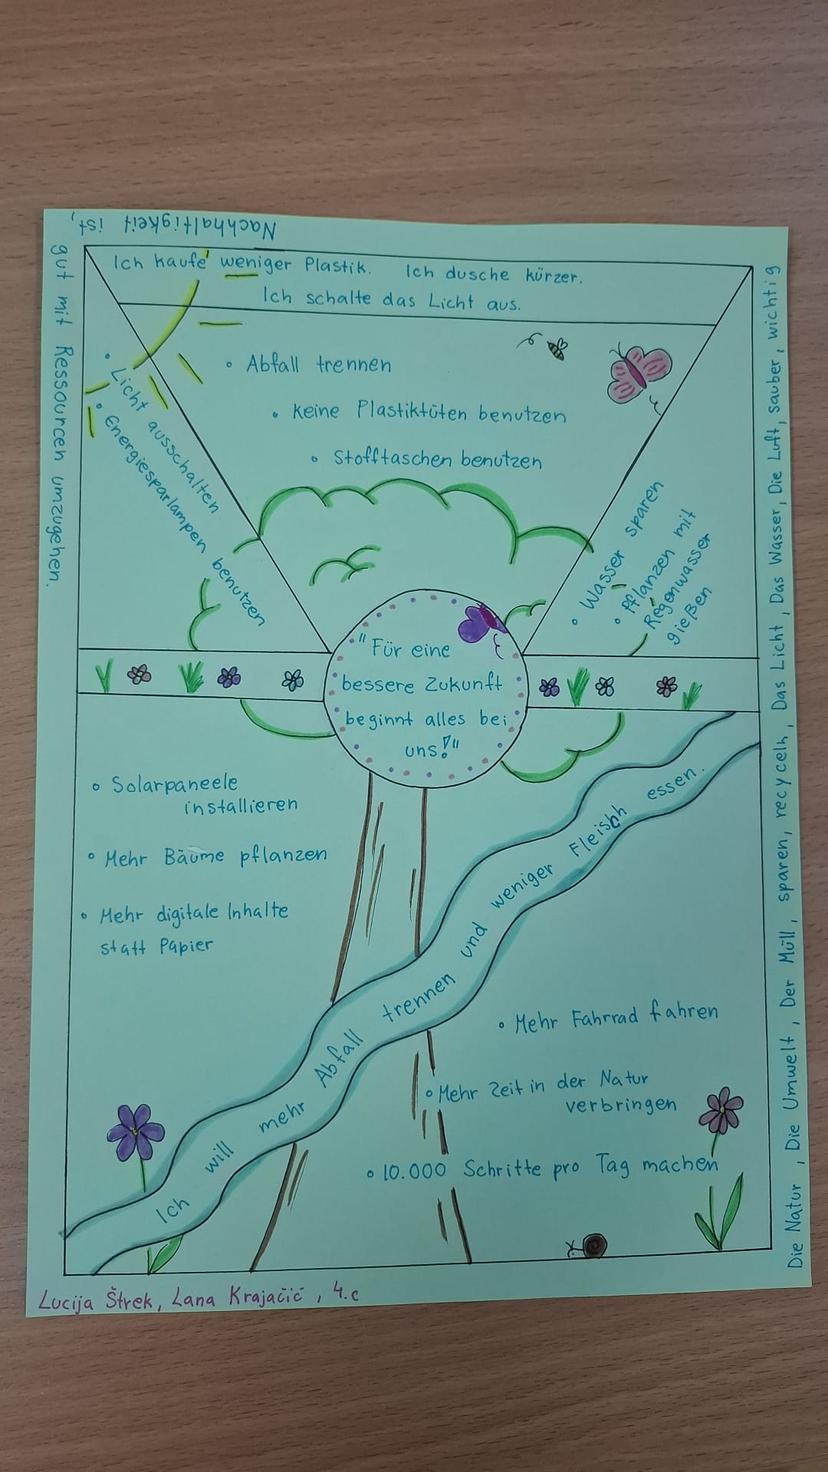 Nachhaltigkeit ist,
gut mit Ressourcen umzugehen.
Ich kaufe weniger Plastik. Ich dusche kürzer.
Ich schalte das Licht aus.
• Abfall trennen
• Keine Plastiktüten benutzen
• Stofftaschen benutzen
• Licht ausschalten
• Energiesparlampen benutzen
• Wasser sparen
• Pflanzen mit
Regenwasser
gießen
"Für eine
bessere Zukunft
beginnt alles bei
uns!"
• Solarpaneele
installieren
• Mehr Bäume pflanzen
• Mehr digitale Inhalte
statt Papier
Ich will mehr Abfall trennen und weniger Fleisch essen.
• Mehr Fahrrad fahren
• Mehr Zeit in der Natur
verbringen
• 10.000 Schritte pro Tag machen
Die Natur, Die Umwelt, Der Müll, sparen, recyceln, Das Licht, Das Wasser, Die Luft, sauber, wichtig
Lucija Štrek, Lana Krajačić, 4.c